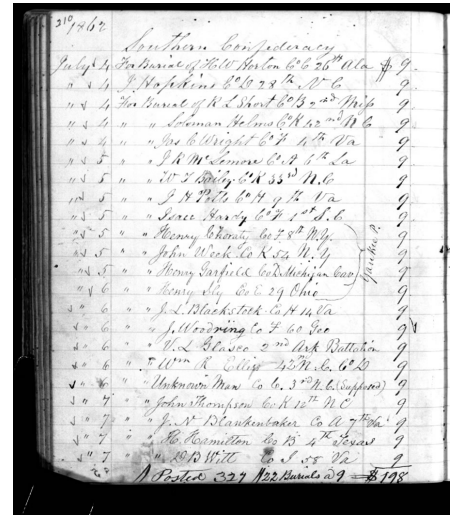 210
1862
Southern Confederacy
July 4 For Burial of H W Horton Co C 26th Ala $ 9
" 4 J Hopkins Co D 28th N C 9
" 4 For Burial of R L Short Co B 2nd Miss 9
" 4 " " Soloman Helms Co K 42nd N C 9
" 4 " " Jas C Wright Co F 4th Va 9
" 5 " " J R McLemore Co A 6th La 9
" 5 " " W T Baily Co K 33rd N.C 9
" 5 " " J H Potts Co H 9th Va 9
" 5 " " Isaac Hardy Co F 1st S.C 9
" 5 " " Henry Co F 8th N.Y. 9
" 5 " " John Week Co K 54 N.Y 9
" 5 " " Henry Garfield Co Michigan Cav 9
" 6 " " Henry Sly Co E 29 Ohio 9
Yankee P.
" 6 " " J. L. Blackstock Co H 14 Va 9
" 6 " " J. Woodring Co F 60 Geo 9
" 6 " " V. L. Glasco 2nd Ark Battalion 9
" 6 " " Wm R. Ellis 42nd N.C. Co D 9
" 6 " " Unknown Man Co C. 3rd N.C. (Supposed) 9
" 7 " " John Thompson Co K 12th N C 9
" 7 " " J. N. Blankenbaker Co A 7th Va 9
" 7 " " H. Hamilton Co B 4th Texas 9
" 7 " " D B Witt Co I 58 Va 9
Posted 327 22 Burials a 9 = $198